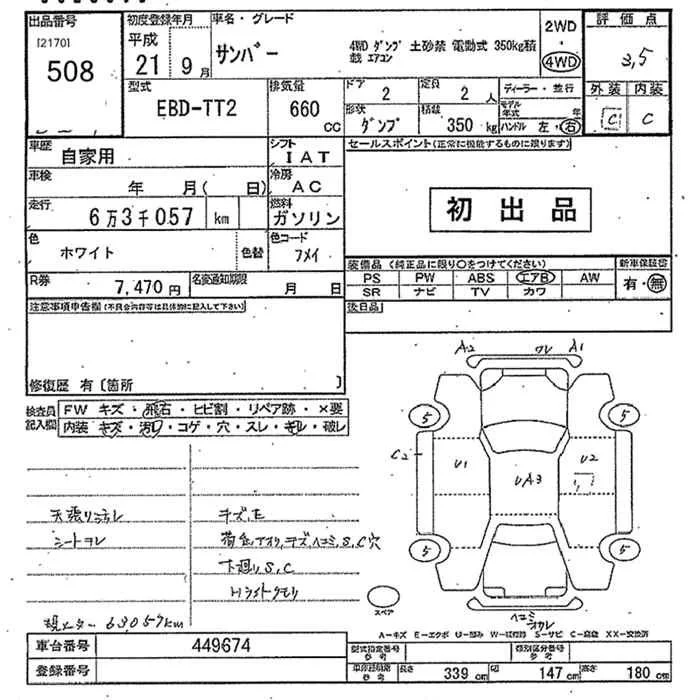 出品番号 初度登録年月 車名・グレード 2WD 評価点
[2170] 508 平成 21 9月 サンバー 4WD ダンプ 土砂禁 電動式 350kg積載 エアコン 4WD 3,5
型式 排気量 ドア 定員 ディーラー・並行 外装 内装
EBD-TT2 660 cc 2 2人 モデル年式 年 C C
形状 積載
ダンプ 350 kg ハンドル 左・右
車歴 自家用 シフト IAT セールスポイント(正常に機能するものに限ります)
車検 年 月( 日) 冷房 AC
走行 6万3千057 km 燃料 ガソリン 初出品
色 ホワイト 色替 色コード フメイ
装備品 (純正品に限り○をつけてください) 新車保証書
R券 7,470円 名変通知期限 月 日 PS PW ABS エアB AW 有・無
SR ナビ TV カワ
注意事項申告欄(不具合内容等は具体的に記入して下さい) 後日品
修復歴 有〔箇所 〕
検査員記入欄 FW キズ・飛石・ヒビ割・リペア跡・×要
内装・キズ・汚れ・コゲ・穴・スレ・キレ・破レ
A2 ワレ A1
5 5
C2 U1 UA3 U2
5 5
キズ,E
シートヨレ
下廻り S,C
現メーター 63057km
スペア
ヘコミ
A-キズ E-エクボ U-凹み S-サビ C-腐食 XX-交換済
車台番号 449674 型式指定番号 参考 類別区分番号 参考
登録番号 長さ 339 cm 巾 147 cm 高さ 180 cm